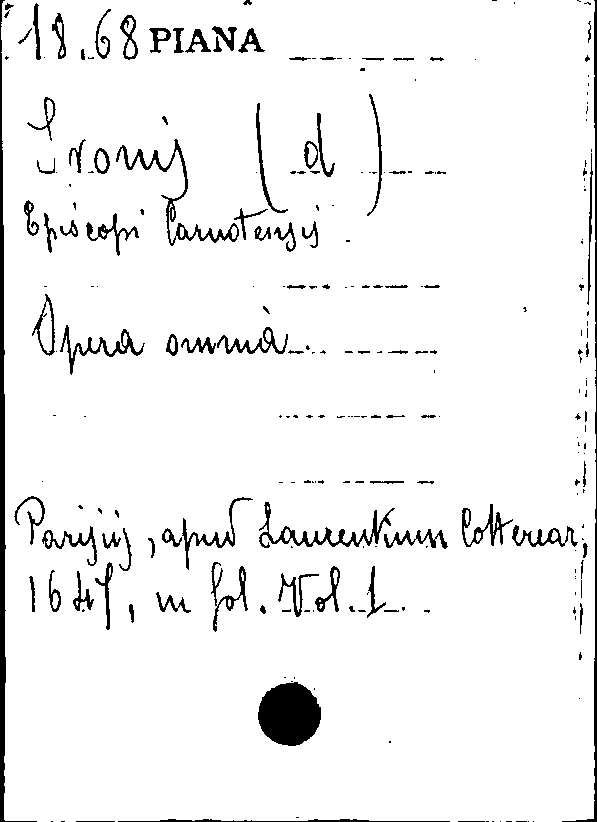 18.68 PIANA
Ivonis (d)
Episcopi Carnotensis.
Opera omnia.
Parisiis, apud Laurentium Cottereau,
1647, in fol. Vol. 1.